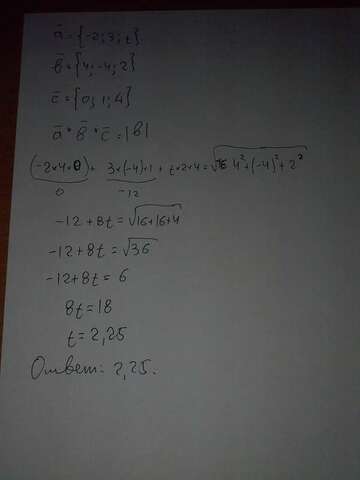 a̅ = {-2; 3; t}
b̅ = {4; -4; 2}
c̅ = {0; 1; 4}
a̅ * b̅ * c̅ = |b|
(-2*4*0) + 3*(-4)*1 + t*2*4 = √4²+(-4)²+2²
0 -12
-12 + 8t = √16+16+4
-12 + 8t = √36
-12 + 8t = 6
8t = 18
t = 2,25
Ответ: 2,25.